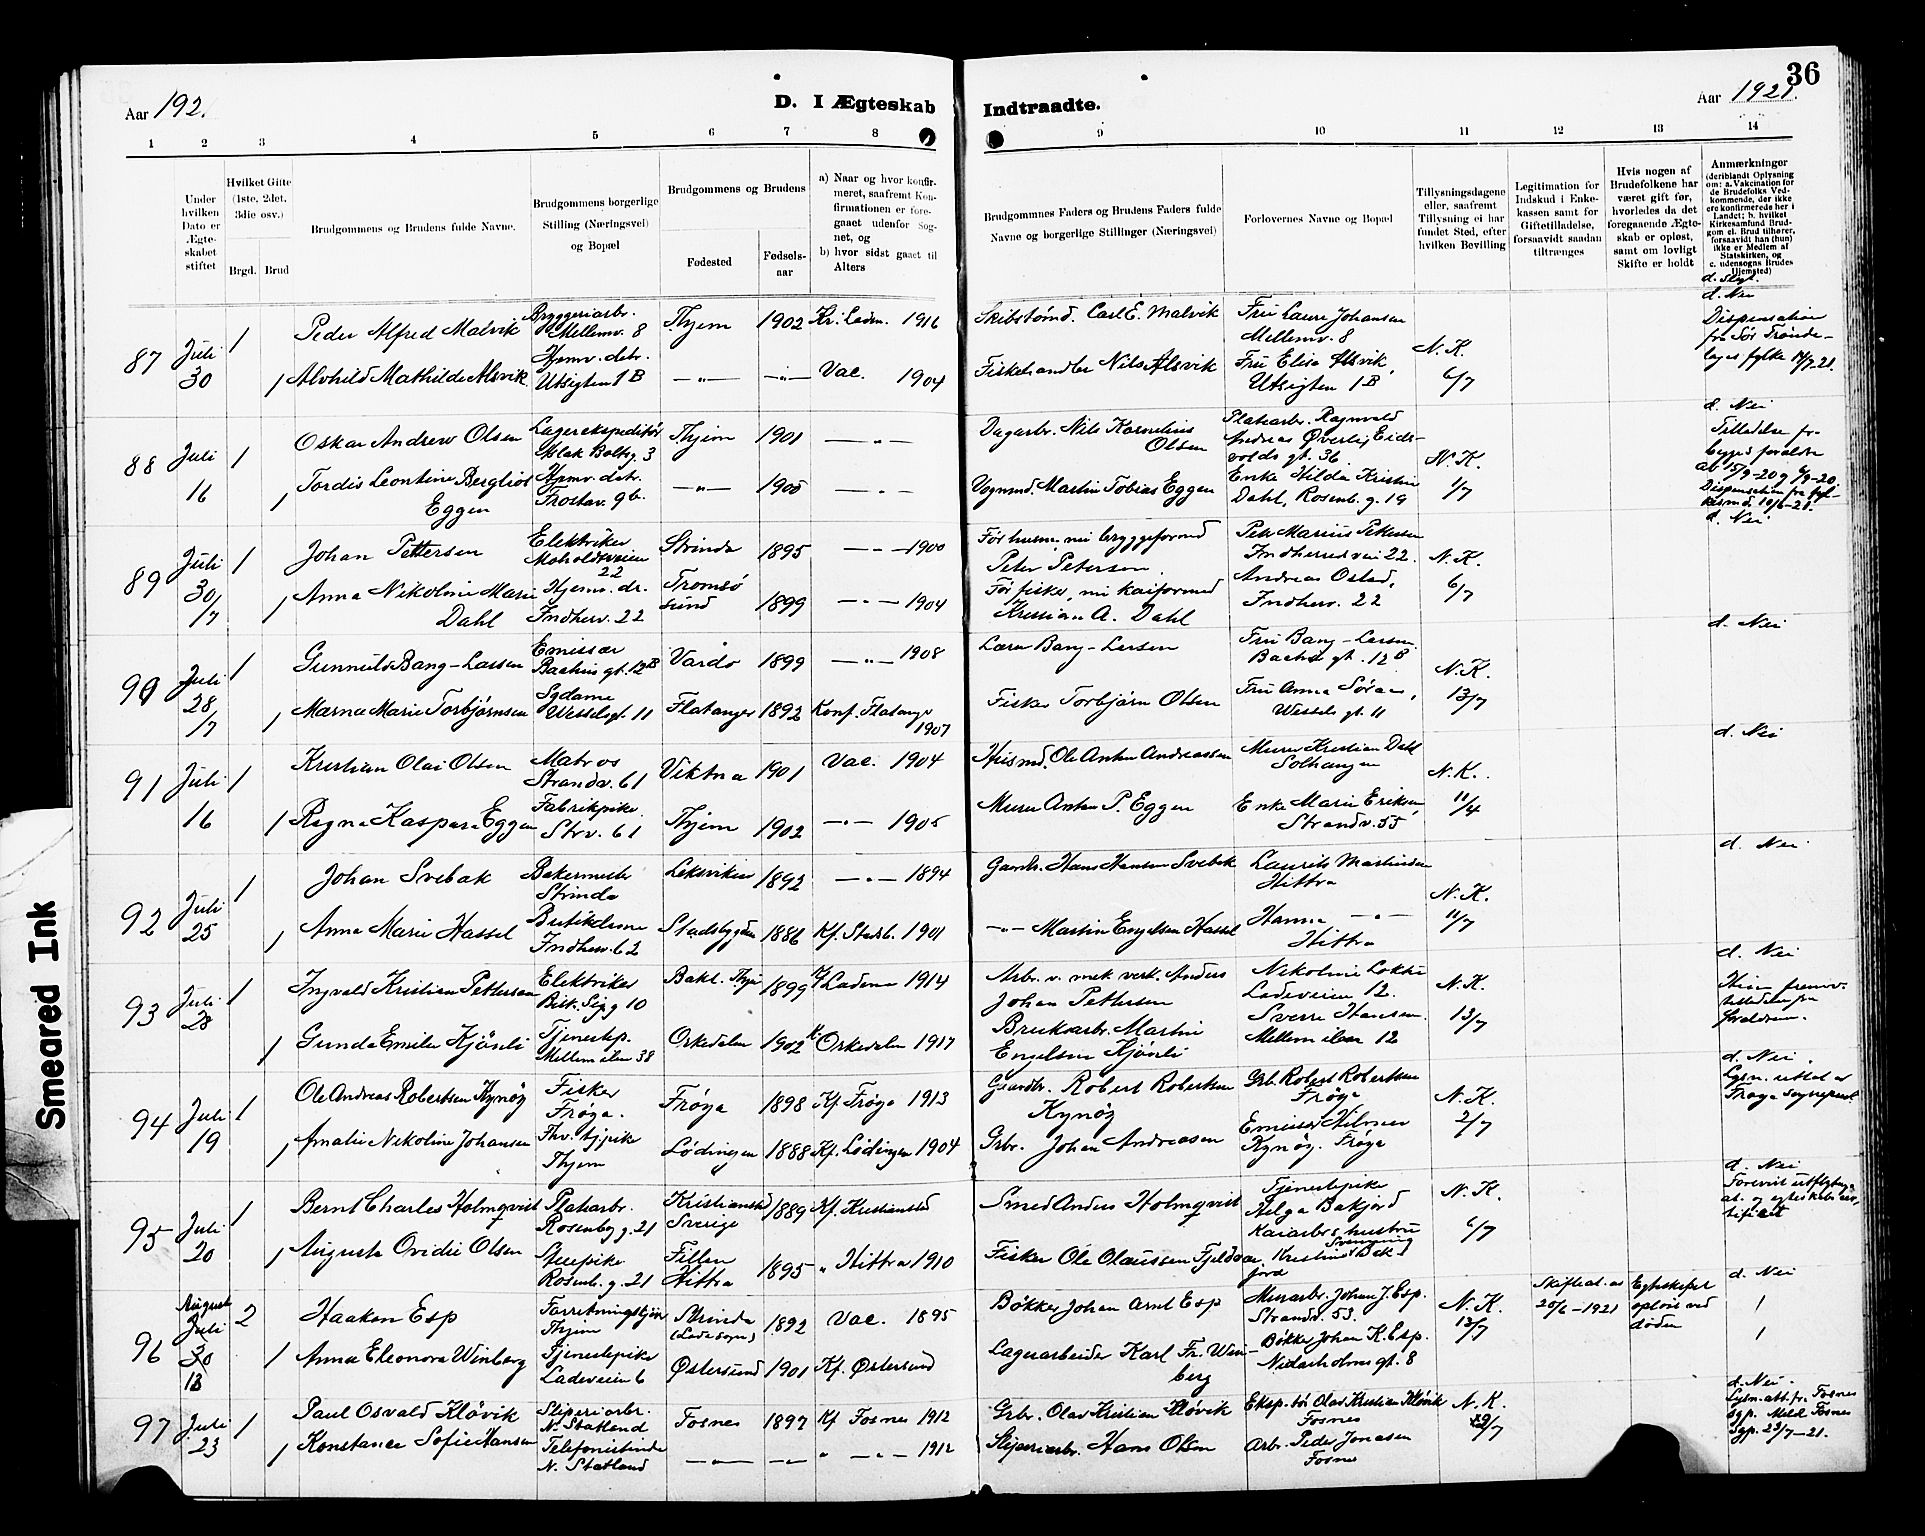 36
Aar 192.
D. I Ægteskab Indtraadte.
Aar 1921.
1 2 3 4 5 6 7 8 9 10 11 12 13 14
Under hvilken Dato er Ægte-skabet stiftet
Hvilket Gifte (1ste, 2det, 3die osv.)
Brgd. Brud
Brudgommens og Brudens fulde Navne.
Brudgommens borgerlige Stilling (Næringsvei) og Bopæl
Brudgommens og Brudens
Fødested
Fødsels-aar
a) Naar og hvor konfir-meret, saafremt Kon-firmationen er fore-gaaet udenfor Sog-net, og
b) hvor sidst gaaet til Alters
Brudgommnes Faders og Brudens Faders fulde Navne og borgerlige Stillinger (Næringsvei)
Forlovernes Navne og Bopæl
Tillysningsdagene eller, saafremt Tillysning ei har fundet Sted, efter hvilken Bevilling
Legitimation for Indskud i Enke-kassen samt for Giftetilladelse, forsaavidt saadan tiltrænges
Hvis nogen af Brudefolkene har været gift før, hvorledes da det foregaaende Ægte-skab er opløst, samt om lovligt Skifte er holdt
Anmærkninger (deriblandt Oplysning om: a. Vakcination for de Brudefolks Ved-kommende, der ikke ere konfirmerede her i Landet; b. hvilket Kirkesamfund Brud-gom el. Brud tilhører, forsaavidt han (hun) ikke er Medlem af Statskirken, og c. udensogns Brudes Hjemsted)
d. Slgt.
87 Juli 30 1 Peder Alfred Malvik Bryggeriarb. Mellemv. 8 Thjem 1902 Kr. Laden. 1916 Skibstømd. Carl E. Malvik Fru Laura Johansen Mellemv. 8 N. K. 6/7 d. Nei Dispensation fra Sør Trønde-lags fylke 14/7-21.
1 Alvhild Mathilde Alsvik Hjmv. dtr. Utsigten 1 B —"— —"— Vac. 1904 Fiskehandler Nils Alsvik Fru Elisa Alsvik, Utsigten 1 B
88 Juli 16 1 Oskar Andrew Olsen Lagerekspeditør Aslak Boltsg. 3 Thjem 1901 —"— Dagarb. Nils Kornelius Olsen Platearb. Ragnvald Andreas Øverlig Eids-volds gt. 36 N. K. 1/7 d. Nei
Tilladelse fr. begges foraldre av 15/9-20 og 6/9-20.
1 Tordis Leontine Bergliot Eggen Hjmv. dtr. Trostav. 9 b. —"— 1900 —"— Vognmd. Martin Tobias Eggen Enke Hilda Kristine Dahl, Rosenb. g. 19
89 Juli 30/7 1 Johan Pettersen Elektriker Moholdtveien 22 Strinda 1895 —"— 1900 Før husm., nu bryggeformd Peter Petersen. Petr Marius Pettersen Indherredsvei 22. N. K. 6/7 d. Nei
1 Anna Nikoline Marie Dahl Hjemv. dr. Indherv. 22 Tromsø sund 1899 —"— 1904 Før fisker, nu kaiformd Kristian A. Dahl Andreas Osted, Indherv. 22
90 Juli 28/7 1 Gunnulv Bang-Lassen Emissær Bachus gt. 12B Vardø 1899 —"— 1908 Lærer Bang-Larsen Fru Bang-Larsen Bachus gt. 12 B N. K. 13/7 d. Nei
1 Marna Marie Torbjørnsen Sydame Wesselsgt. 11 Flatanger 1892 Konf. Flatanger 1907 Fisker Torbjørn Olsen Fru Anna Søraa, Wessels gt. 11
91 Juli 16 1 Kristian Olai Olsen Matros Strandv. 61 Viktna 1901 Vac. 1904 Husmd. Ole Anton Andreassen Murer Kristian Dahl Solhaugen N. K. 11/4 d. Nei
1 Ragna Kaspara Eggen Fabrikpike Strv. 61 Thjem 1902 —"— 1905 Murer Anton P. Eggen Enke Marie Eriksen, Strandv. 55
92 Juli 25 1 Johan Svebak Bakermester Strinda Leksviken 1892 —"— 1894 Gaardbr. Hans Hansen Svebak Laurits Martinsen Hittra N. K. 11/7 d. Nei
1 Anna Marie Hassel Butikdame Indherv. 62 Stadsbygden 1886 Kf. Stadsb. 1901 —"— Martin Engelsen Hassel Hanna —"— Hittra
93 Juli 28 1 Ingvald Kristian Pettersen Elektriker Bisk. Sig g 10 Bakl. Thje 1899 Kf Laden 1914 Arb. v. mek. verk. Anders Johan Pettersen Nikoline Lokke Ladeveien 12. N. K. 13/7 d. Nei
1 Gunda Emilie Kjønli Tjenestep. Mellem ilen 38 Orkedalen 1902 K. Orkedalen 1917 Bruksarb. Martin Engelsen Kjønli Sverre Hansen. Mellem ilen 12
94 Juli 19 1 Ole Andreas Robertsen Kynø Fisker Frøya. Frøya 1898 Kf. Frøya 1913 Gaardbr. Robert Robertsen Kynø Grb. Robert Robertsen Frøya N. K. 2/7 d. Nei.
1 Amalie Nikoline Johansen Thjem Lødingen 1888 Kf. Lødingen 1904 Grbr. Johan Andreasen Emissær Hilmar Kynø. Frøya
95 Juli 20 1 Bernt Charles Holmqvist Platearbr. Rosenbg g. 21 Kristianstad Sverige 1889 Kf. Kristianstad Smed Anders Holmqvist Tjenestepike Helga Bakfjord N. K. 6/7 d. Nei
1 Augusta Ovidie Olsen Rosenb. g. 21 Fillan Hittra 1895 " Hittra 1910 Fisker Ole Olaussen Fjeldvær Kaiarbs hustru Kristine
96 August Juli 30 13 2 Haakon Esp Forretningsbjør Thjem Strinda (Lade sogn) 1892 Vac. 1895 Bøkker Johan Arnt Esp Murarb. Johan J. Esp. Strandv. 53. N. K. 13/7 Skifteat. av 20/6-1921 Egteskapet opløst ved døden d. Nei
1 Anna Eleonora Winberg Tjenestepike Ladeveien 6 Østersund 1901 Kf. Østersund Lagerarbeider Karl Fr. Win-berg Bøkker Johan K. Esp. Nidarholms gt. 8
97 Juli 23 1 Paul Osvald Kløvik Sliperiarbr. N. Statland Fosnes 1897 Kf Fosnes 1912 Grbr. Olav Kristian Kløvik Eksp. bør Olav Kristian Kløvik Fosnes N. K. 29/7 d. Nei.
Lysn. att. fr. Fosnes sgp. Meld. Fosnes Sgp. 23/7-21.
1 Konstance Sofie Hansen Telefonistinde N. Statland —"— —"— " —"— 1912 Sliperiarbr. Hans Olsen Arb. Peder Jonasen Fosnes
Smeared Ink